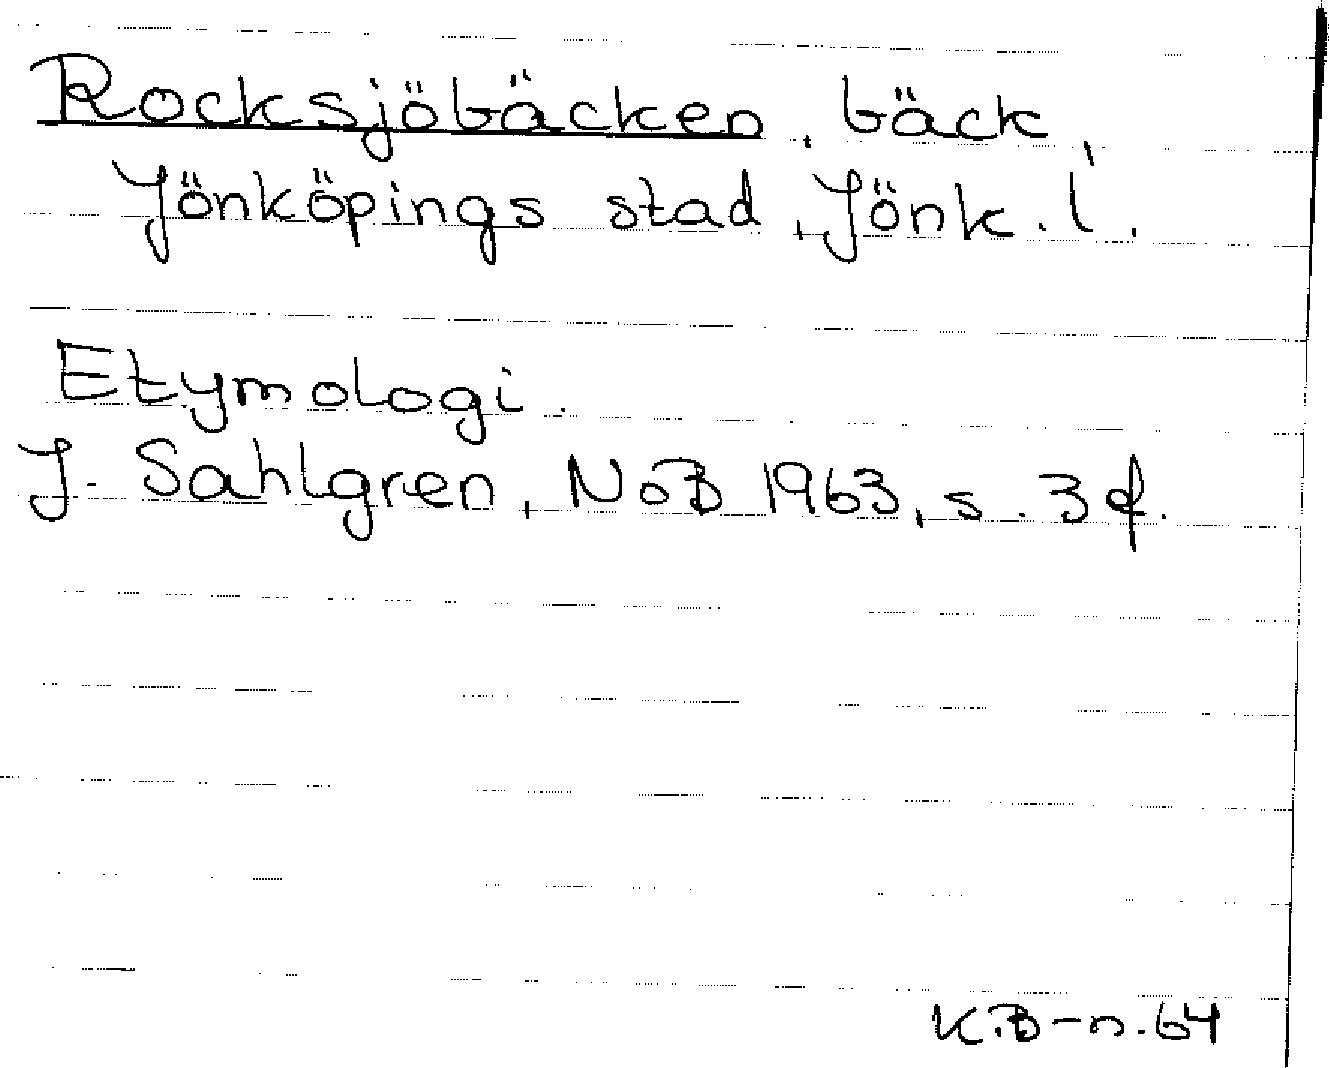 Rocksjöbäcken, bäck,
Jönköpings stad, Jönk. l.
Etymologi.
J. Sahlgren, NoB 1963, s. 3 f.
K.B-n. 64